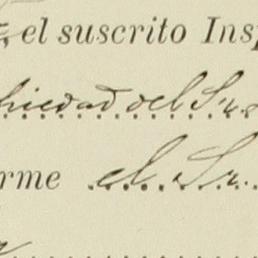 el suscrito Insp
piedad del Sr.
rme el Sr.